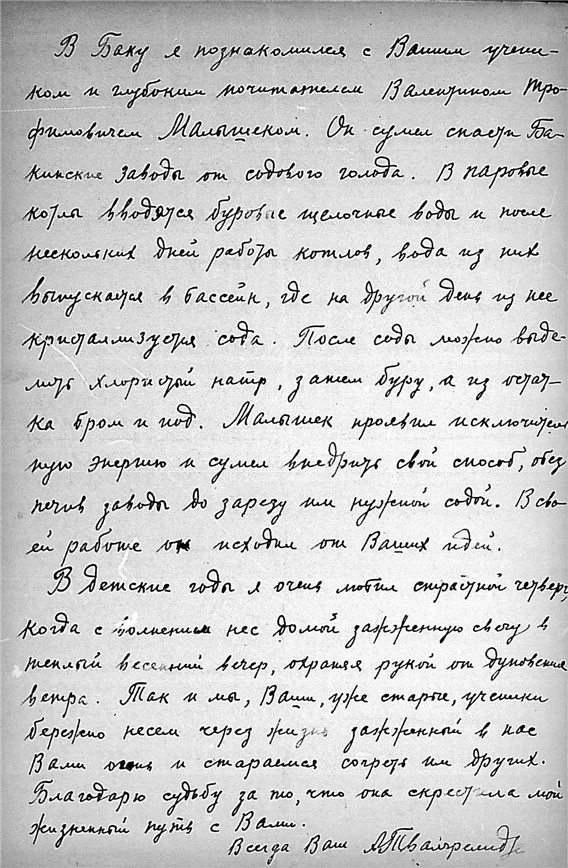 В Баку я познакомился с Вашим учени-
ком и глубоким почитателем Валентином Тро-
фимовичем Малышеком. Он сумел спасти Ба-
кинские заводы от содового голода. В паровые
котлы вводятся буровые щелочные воды и после
нескольких дней работы котлов, вода из них
выпускается в бассейн, где на другой день из нее
кристаллизуется сода. После соды можно выде-
лить хлористый натр, затем буру, а из остат-
ка бром и иод. Малышек проявил исключитель
ную энергию и сумел внедрить свой способ, обес
печив заводы до зарезу им нужной содой. В сво-
ей работе он исходил от Ваших идей.
В детские годы я очень любил страстной четверг,
когда с волнением нес домой зажженную свечу в
теплый весенний вечер, охраняя рукой от дуновения
ветра. Так и мы, Ваши, уже старые, ученики
бережно несем через жизнь зажженный в нас
Вами огонь и стараемся согреть им других.
Благодарю судьбу за то, что она скрестила мой
жизненный путь с Вами.
Всегда Ваш АТвалчрелидзе